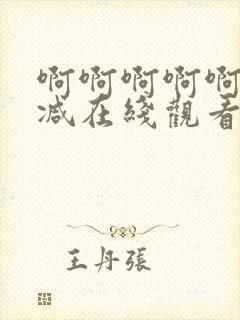 啊啊啊啊啊
减在綫觀看
王丹張